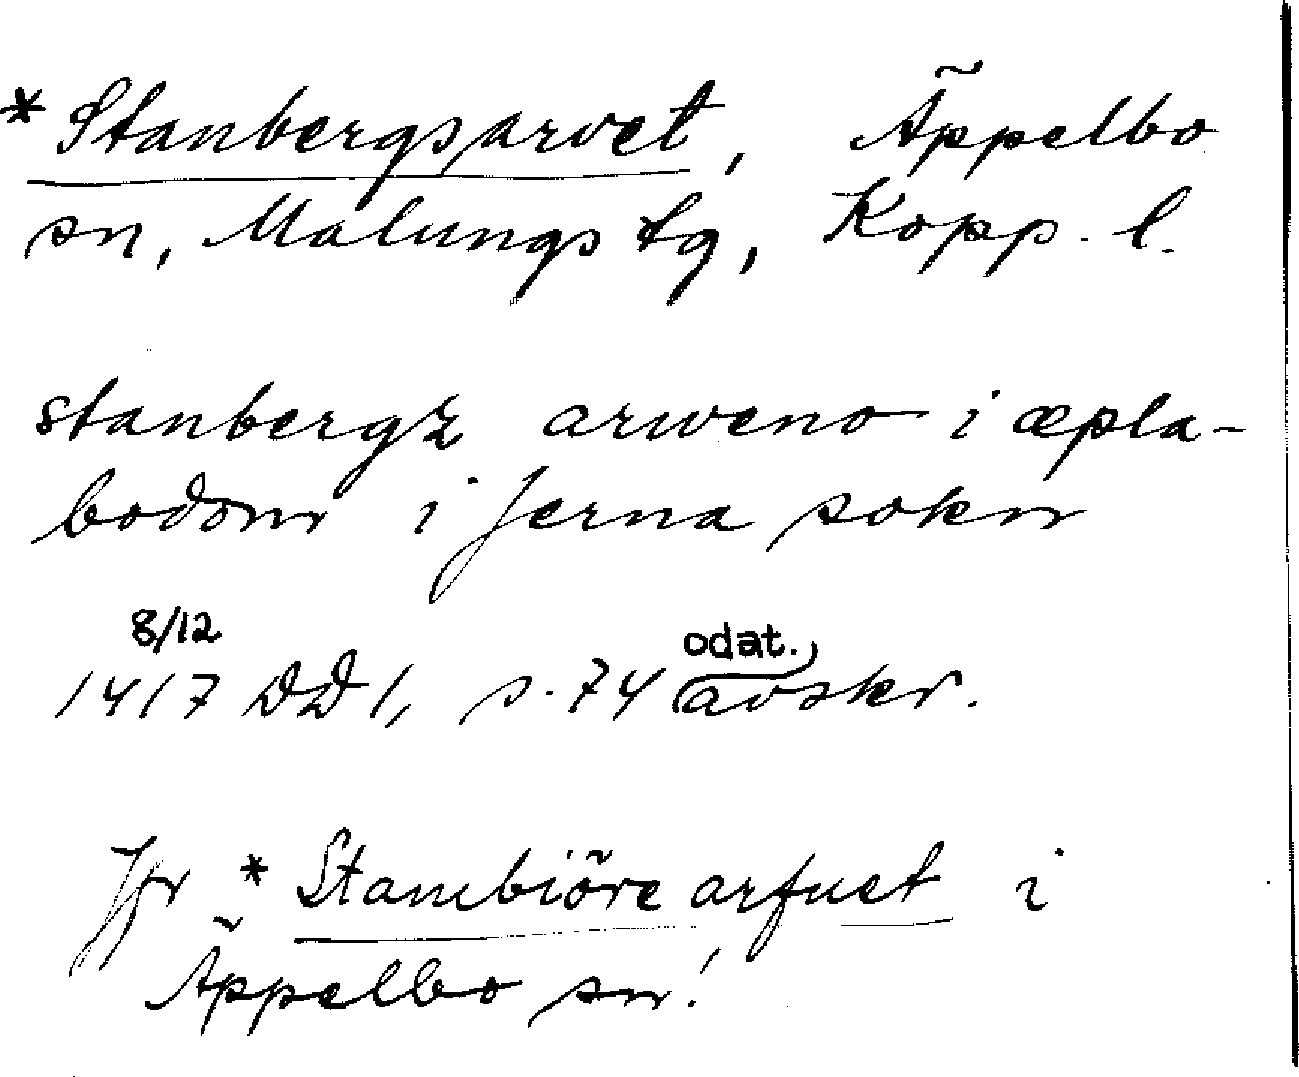 * Stanbergsarvet, Äppelbo
sn, Malungs tg, Kopp. l.
stanbergz arweno i æpla-
bodom i Jerna sokn
8/12
1417 DD 1, s. 74 odat. avskr.
Jfr * Stambiöre arfuet i
Äppelbo sn!